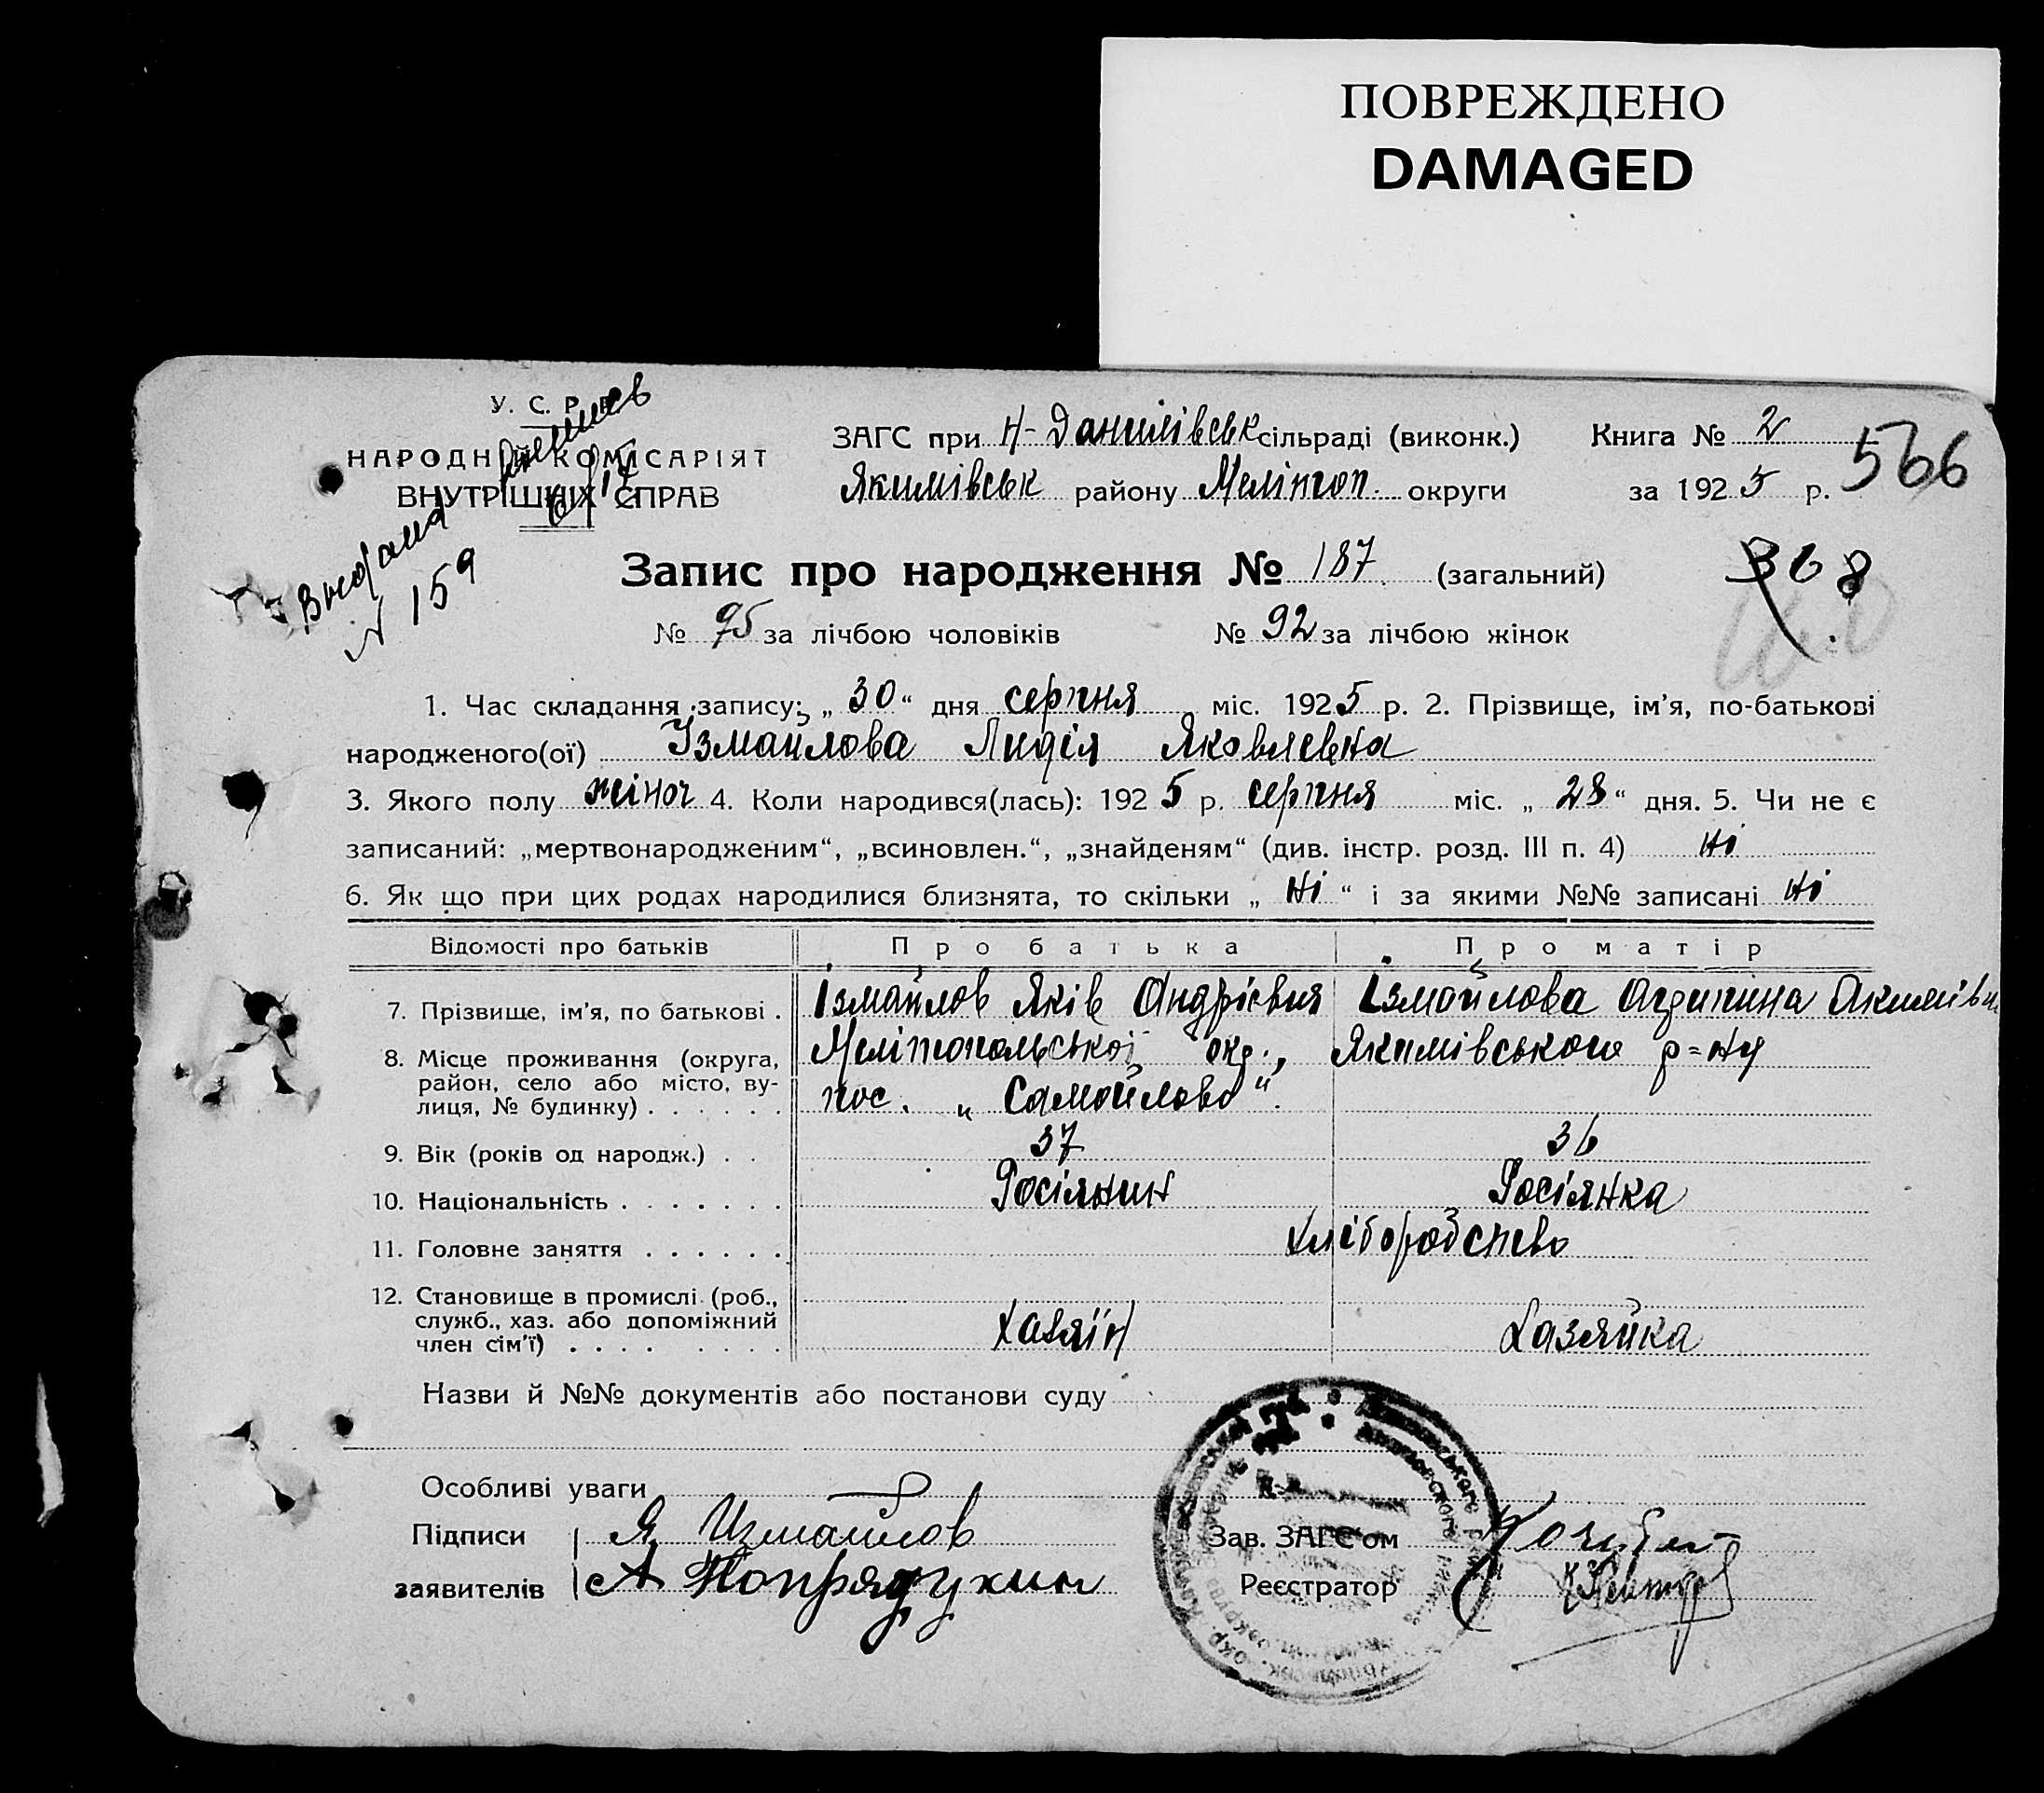 ПОВРЕЖДЕНО
DAMAGED
У. С. Р. Р.
НАРОДНІЙ КОМІСАРІЯТ
ВНУТРІШНІХ СПРАВ
№ 159
ЗАГС при Н-Данилівськ сільраді (виконк.) Книга № 2
566
Якимівськ району Мелітоп. округи за 1925 р.
Запис про народження № 187 (загальний)
368
№ 95 за лічбою чоловіків № 92 за лічбою жінок
1. Час складання запису: „30“ дня серпня міс. 1925 р. 2. Прізвище, ім'я, по-батькові
народженого(ої) Ізмайлова Лидія Яковлевна
3. Якого полу жіноч 4. Коли народився(лась): 1925 р. серпня міс. „28“ дня. 5. Чи не є
записаний: „мертвонародженим“, „всиновлен.“, „знайденям“ (див. інстр. розд. III п. 4) ні
6. Як що при цих родах народилися близнята, то скільки „ні“ і за якими №№ записані ні
Відомості про батьків Про батька Про матір
7. Прізвище, ім'я, по батькові . Ізмайлов Яків Андрієвич Ізмайлова Агрипина Акимівн
8. Місце проживання (округа, район, село або місто, вулиця, № будинку) . . . . . . Мелітопольської окр., Якимівського р=ну
пос. „Самойлово“.
9. Вік (років од народж.) . . 37 36
10. Національність . . . . . . . Росіянин Росіянка
11. Головне заняття . . . . . . Хліборобство
12. Становище в промислі (роб., служб., хаз. або допоміжний член сім'ї) . . . . . . . . Хазяїн Хазяйка
Назви й №№ документів або постанови суду
Особливі уваги
Підписи Я Измайлов Зав. ЗАГС'ом
заявителів Реєстратор